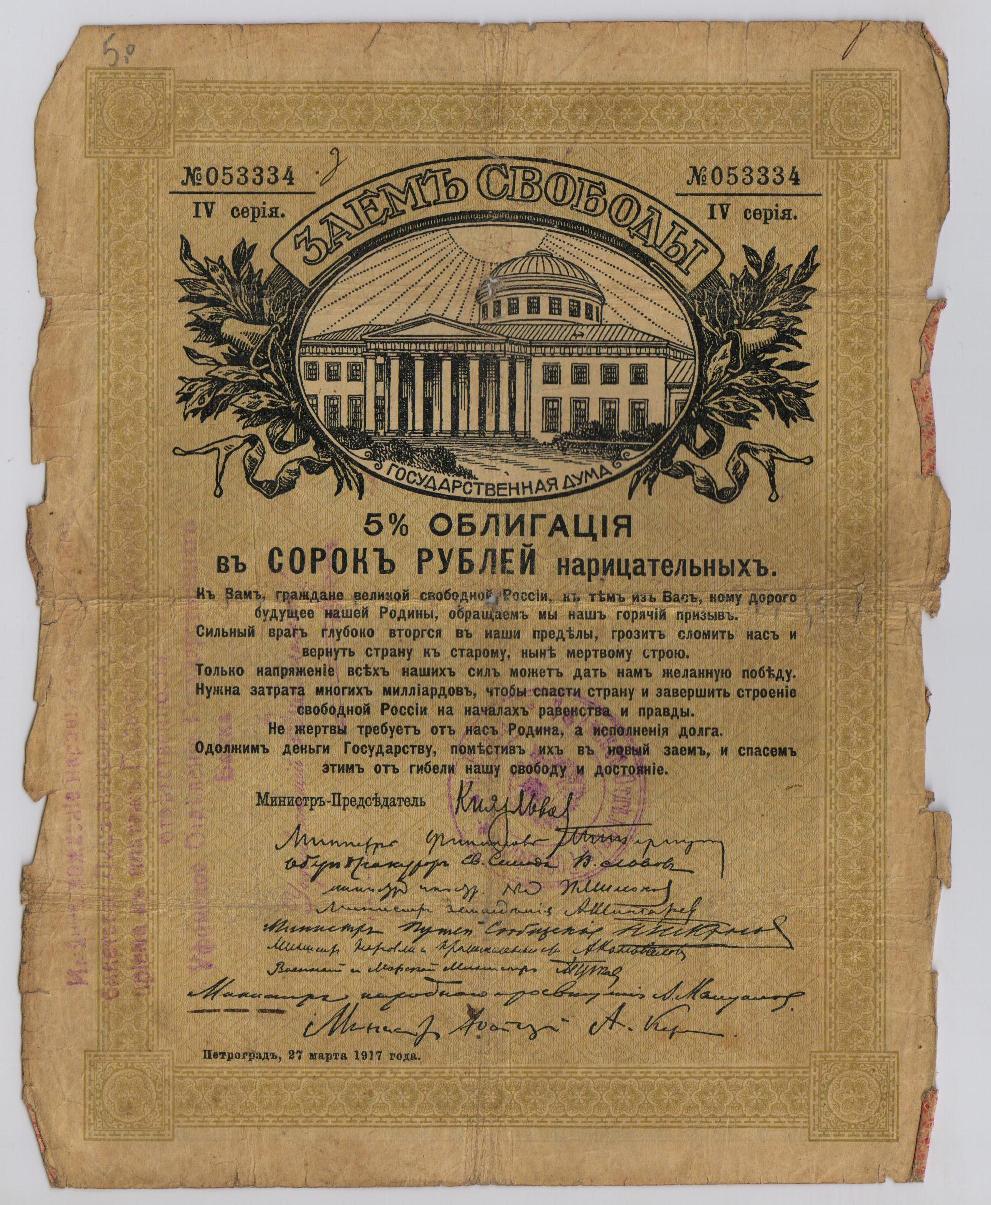 5%
№053334
№053334
IV серія.
IV серія.
ЗАЕМЪ СВОБОДЫ
ГОСУДАРСТВЕННАЯ ДУМА
5% ОБЛИГАЦІЯ
въ СОРОКЪ РУБЛЕЙ нарицательныхъ.
Къ Вамъ, граждане великой свободной Россіи, къ тѣмъ изъ Васъ, кому дорого
будущее нашей Родины, обращаемъ мы нашъ горячій призывъ.
Сильный врагъ глубоко вторгся въ наши предѣлы, грозитъ сломить насъ и
вернуть страну къ старому, нынѣ мертвому строю.
Только напряженіе всѣхъ нашихъ силъ можетъ дать намъ желанную побѣду.
Нужна затрата многихъ милліардовъ, чтобы спасти страну и завершить строеніе
свободной Россіи на началахъ равенства и правды.
Не жертвы требуетъ отъ насъ Родина, а исполненія долга.
Одолжимъ деньги Государству, помѣстивъ ихъ въ новый заемъ, и спасемъ
этимъ отъ гибели нашу свободу и достояніе.
Министръ-Предсѣдатель Князь Львов
Министръ Финансовъ
Оберъ Прокуроръ Св. Синода В. Львовъ
Министръ А. Шингаревъ
Министръ Путей Сообщенія Н. Некрасовъ
Министръ Торговли и Промышленности А. Коноваловъ
Военный и Морской Министръ
Министръ народнаго просвѣщенія А. Мануиловъ.
Министръ А.
Петроградъ, 27 марта 1917 года.